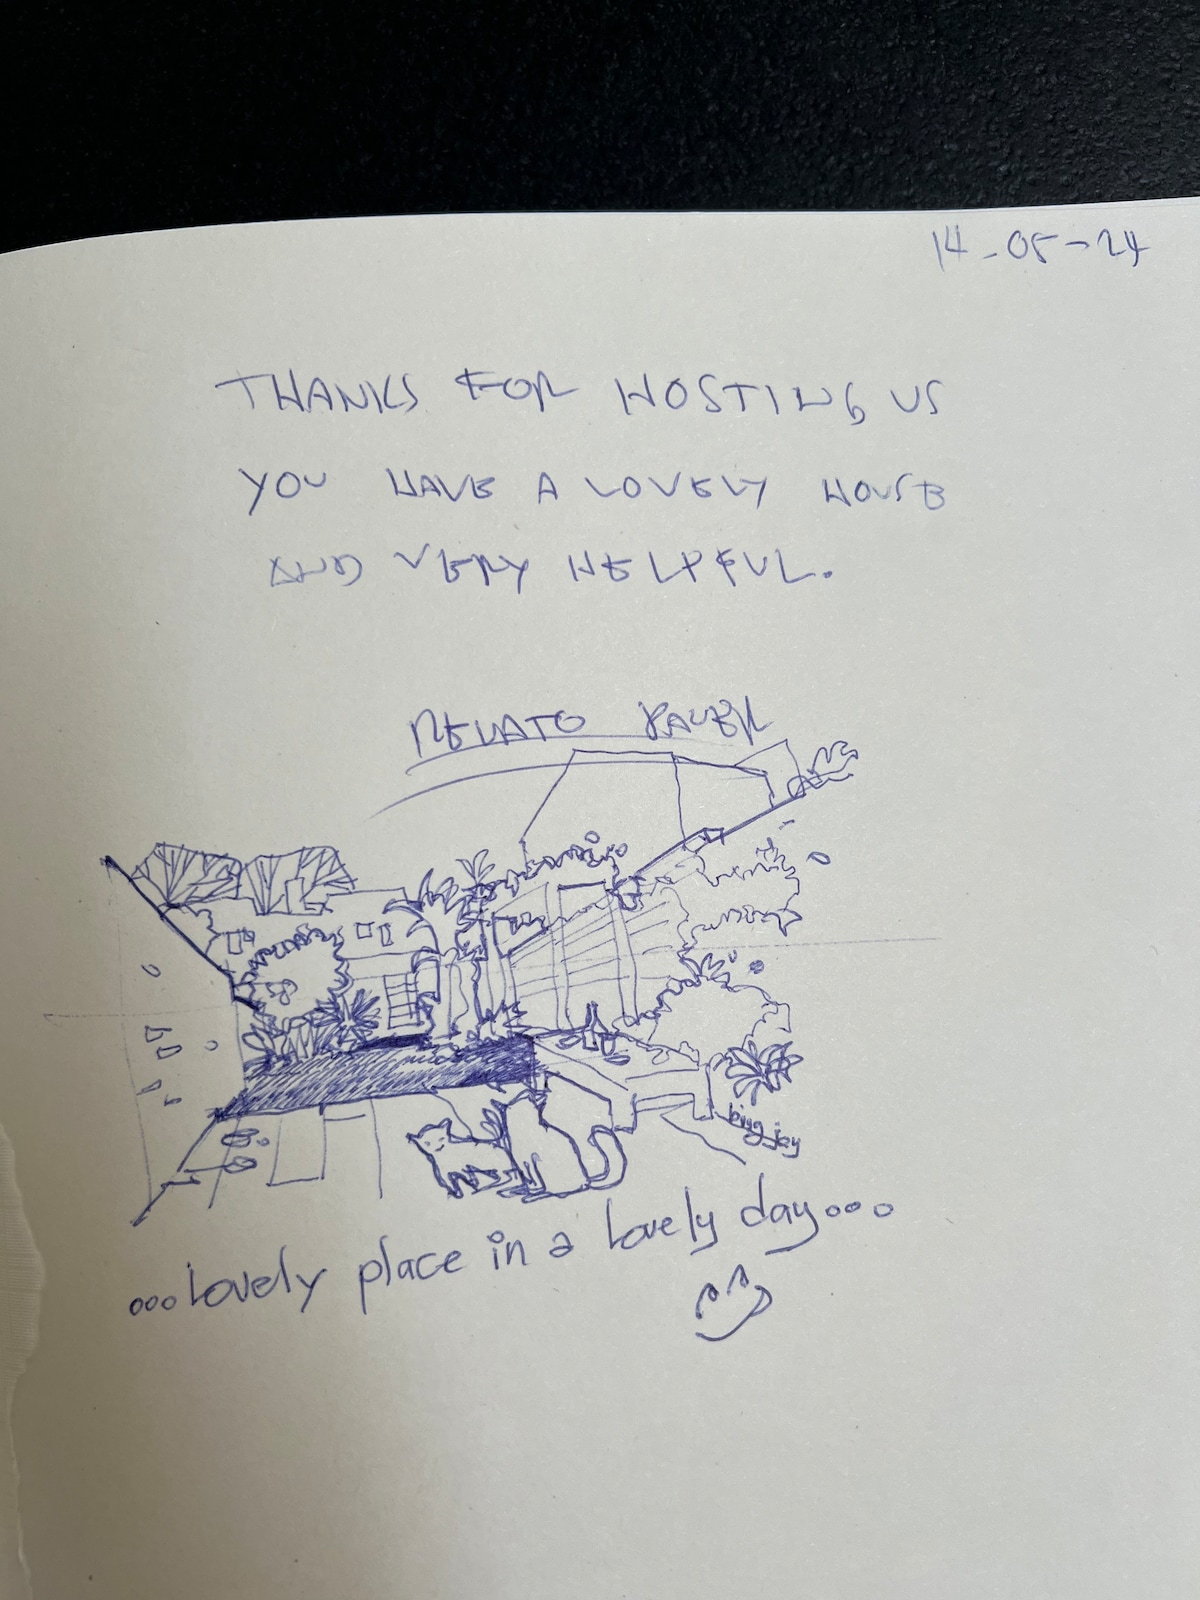 14-05-24
THANKS FOR HOSTING US
YOU HAVE A LOVELY HOUSE
AND VERY HELPFUL.
RENATO
...Lovely place in a lovely day...